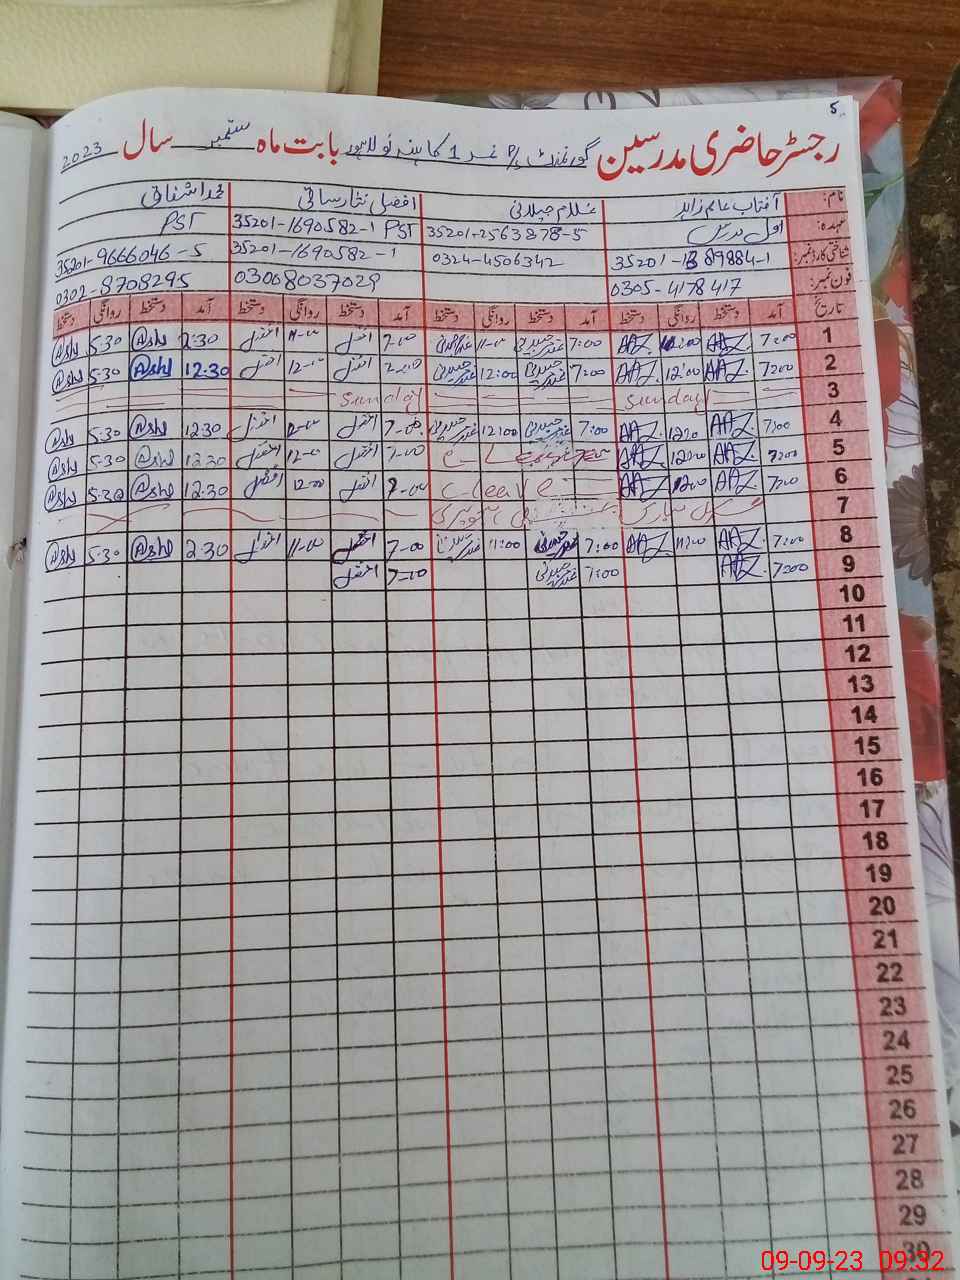 5
رجسٹر حاضری مدرسین گورنمنٹ P/S نمبر 1 کاہنہ نو لاہور بابت ماہ ستمبر سال 2023
نام: آفتاب عالم زاہد غلام جیلانی افضل نثار ساقی محمد اشفاق
عہدہ: اول مدرس 35201-2563878-5 35201-1690582-1 PST PST
شناختی کارڈ نمبر: 35201-1389884-1 0324-4506342 35201-1690582-1 35201-9666046-5
فون نمبر: 0305-4178417 03008037029 0302-8708295
تاریخ آمد دستخط روانگی دستخط آمد دستخط روانگی دستخط آمد دستخط روانگی دستخط آمد دستخط روانگی دستخط
1 7:00 AAZ 11:00 AAZ 7:00 غلام جیلانی 11-00 غلام جیلانی 7-00 افضل 11-00 افضل 2:30 @shf 5:30 @shf
2 7:00 AAZ 12:00 AAZ 7:00 غلام جیلانی 12:00 غلام جیلانی 7-00 افضل 12-00 افضل 12:30 @shf 5:30 @shf
3 Sunday Sunday
4 7:00 AAZ 12:00 AAZ 7:00 غلام جیلانی 12:00 غلام جیلانی 7-00 افضل 12-00 افضل 12:30 @shf 5:30 @shf
5 7:00 AAZ 12:00 AAZ c-Leave 7-00 افضل 12-00 افضل 12:30 @shf 5:30 @shf
6 7:00 AAZ 12:00 AAZ c leave 7-00 افضل 12-00 افضل 12:30 @shf 5:30 @shf
7
8 7:00 AAZ 11:00 AAZ 7:00 غلام جیلانی 11:00 غلام جیلانی 7-00 افضل 11-00 افضل 2:30 @shf 5:30 @shf
9 7:00 AAZ 7:00 غلام جیلانی 7-00 افضل
10
11
12
13
14
15
16
17
18
19
20
21
22
23
24
25
26
27
28
29
30
09-09-23 09:32